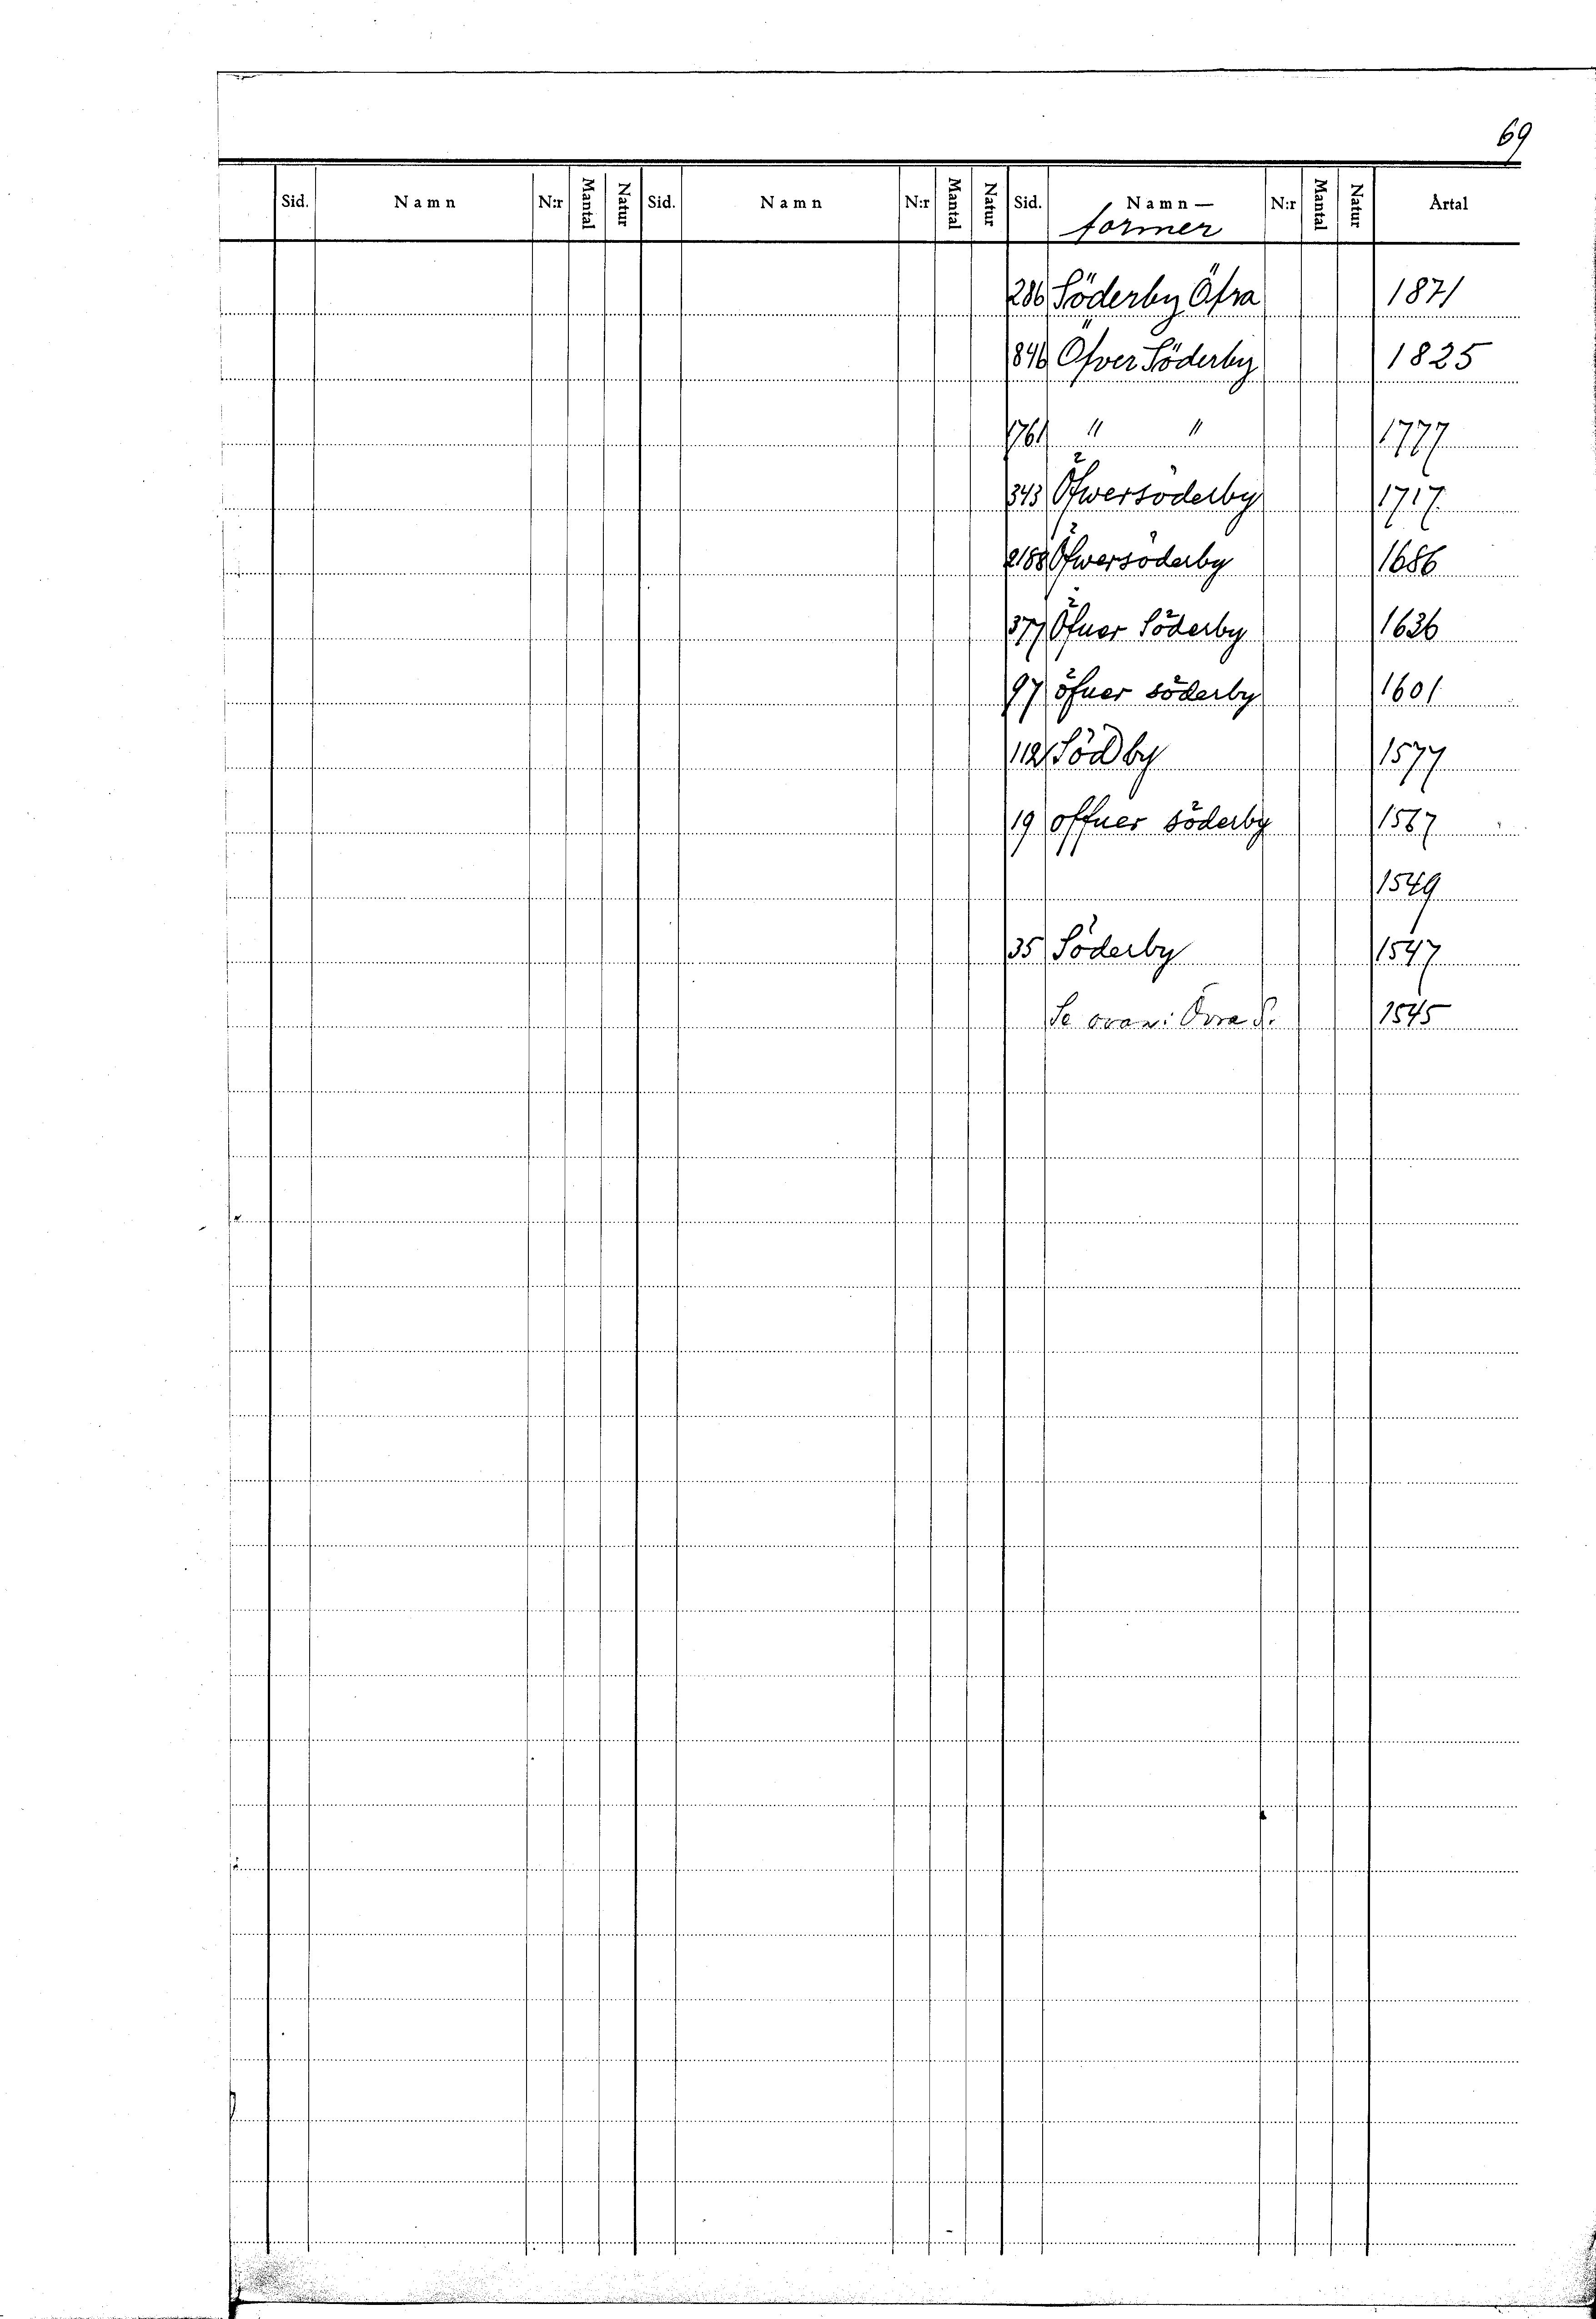 69
Sid. Namn N:r Mantal Natur Sid. Namn N:r Mantal Natur Sid. Namn — N:r Mantal Natur Årtal
former
286 Söderby Öfra 1871
846 Öfver Söderby 1825
1761 " " 1777
343 Öfwersöderby 1717
2188 Öfwersöderby 1686
377 Öfuer Söderby 1636
97 öfuer söderby 1601
112 Södby 1577
19 offuer söderby 1567
1549
35 Söderby 1547
Se ovan: Övre S. 1545